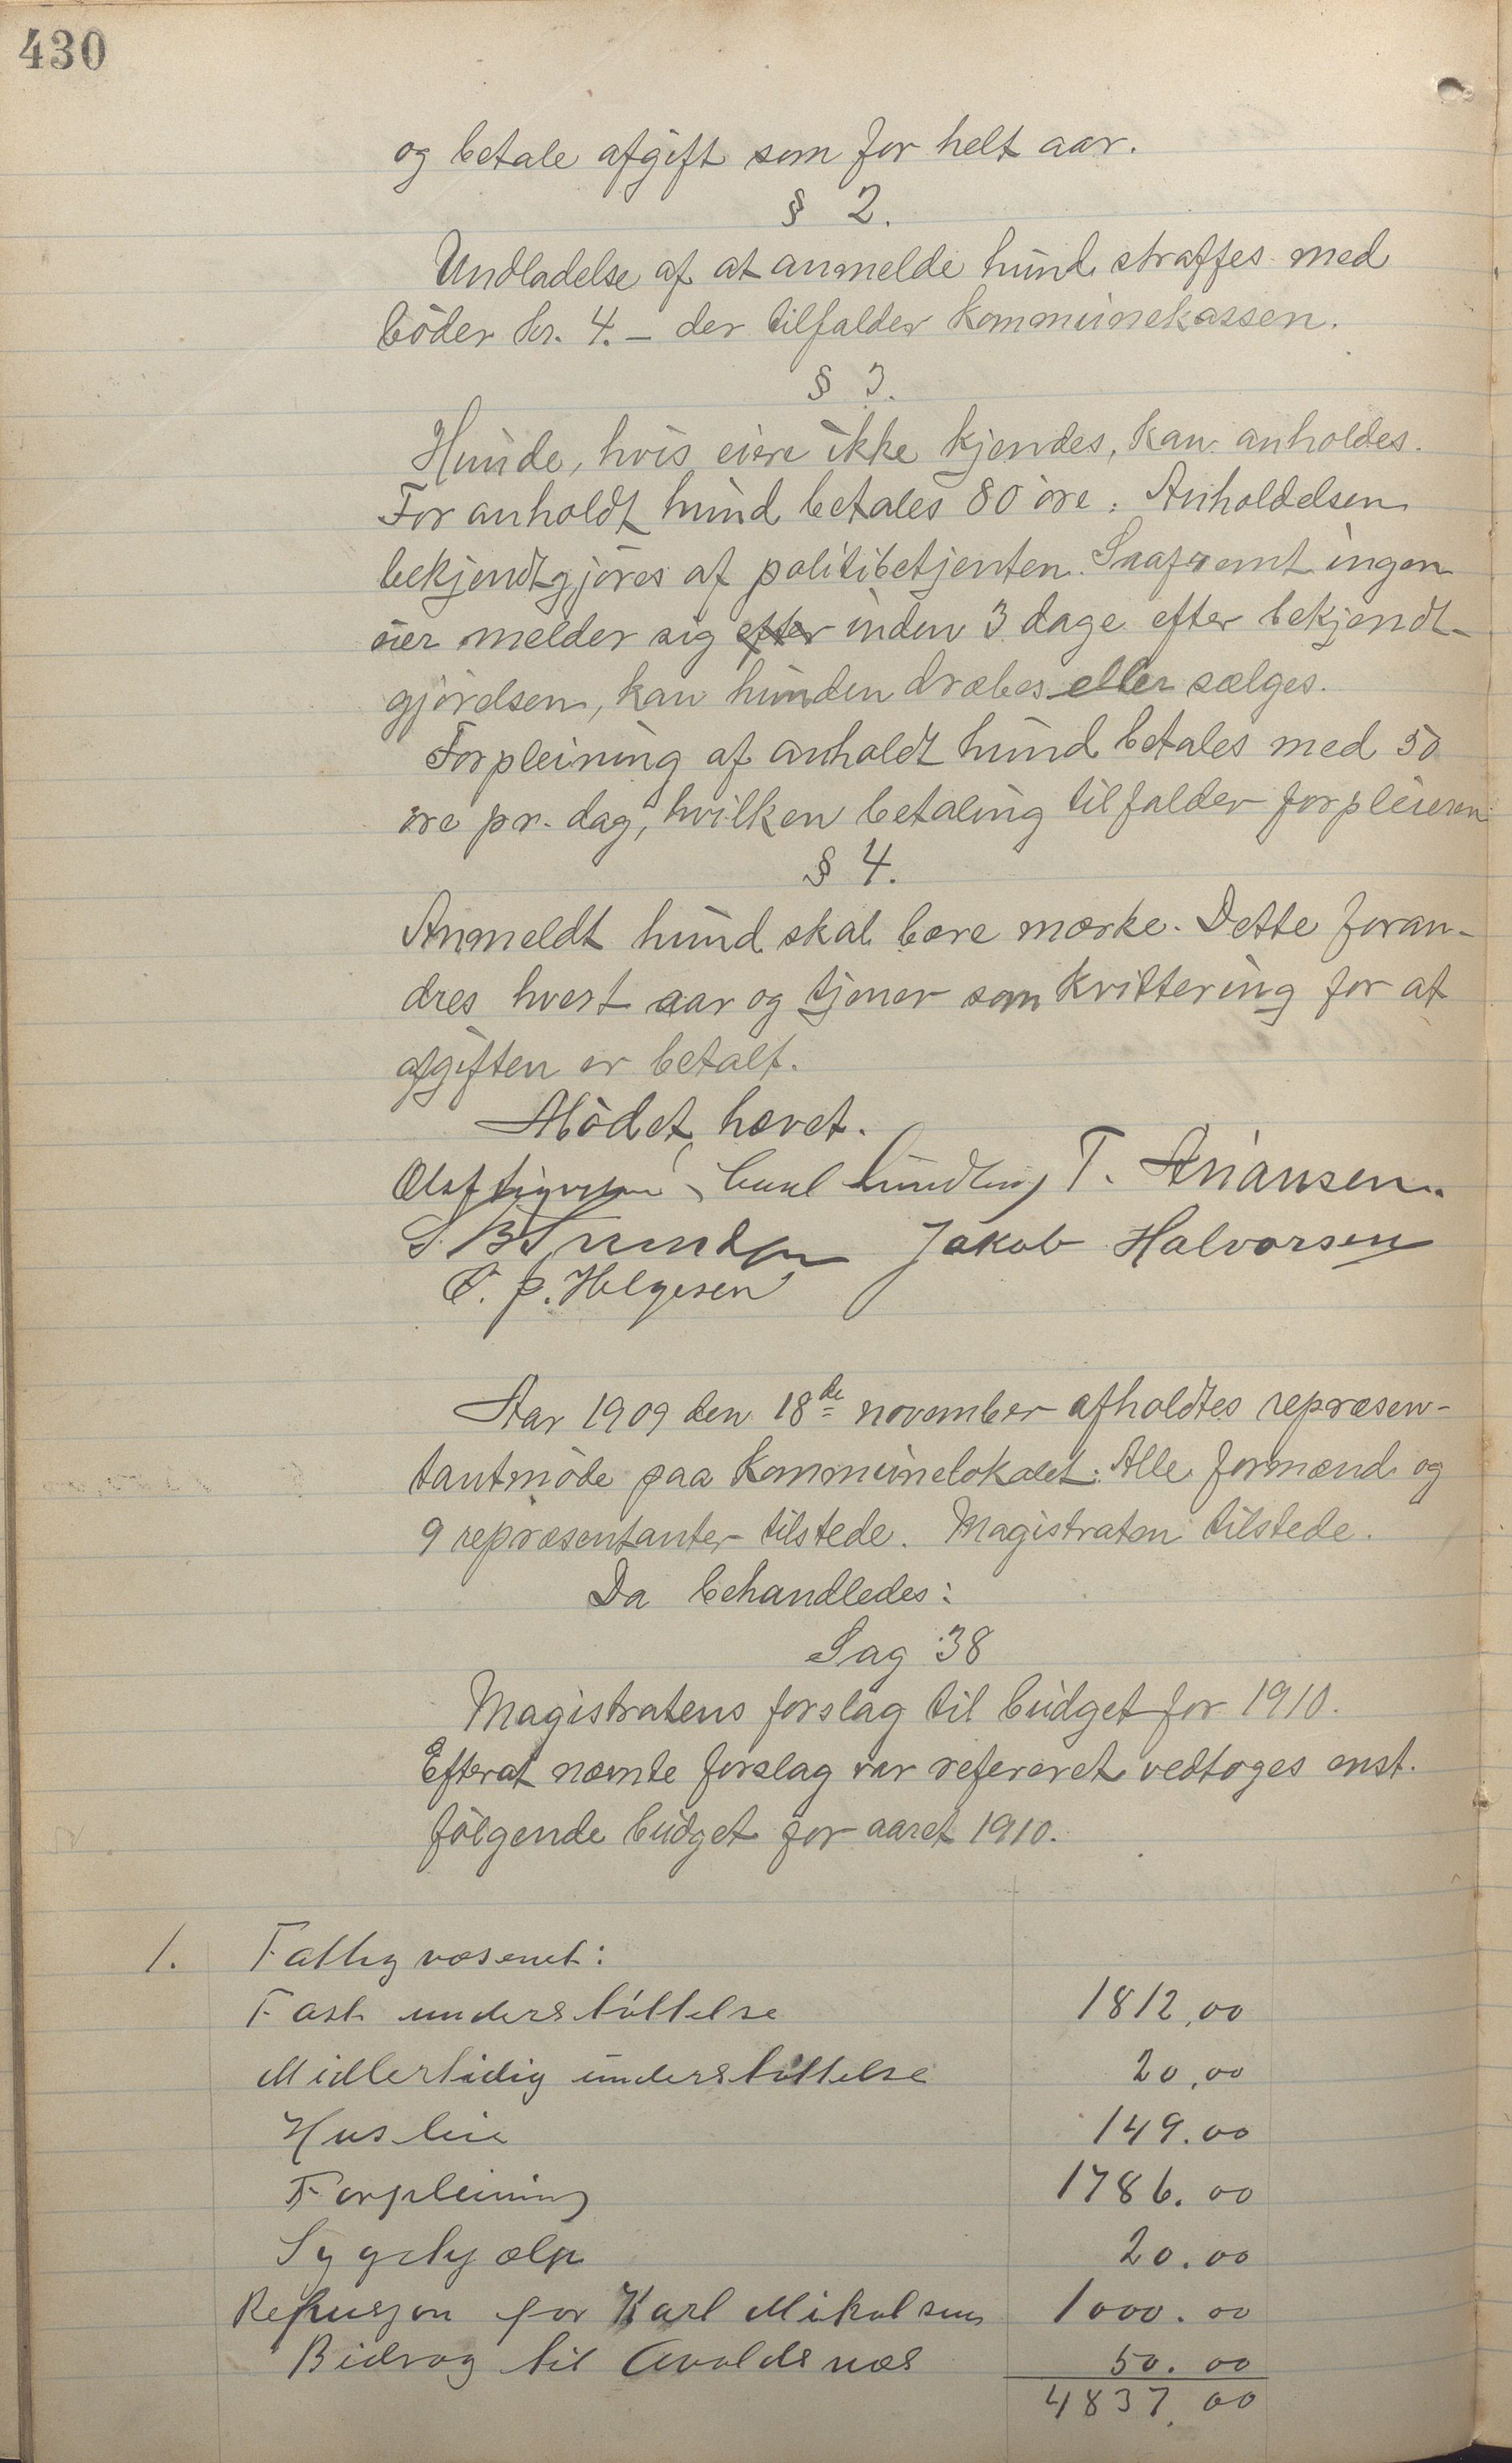 430
og betale afgift som for helt aar.
§ 2.
Undladelse af at anmelde hund straffes med
bøder kr. 4.– der tilfalder kommunekassen.
§ 3.
Hunde, hvis eiere ikke kjendes, kan anholdes.
For anholdt hund betales 80 øre. Anholdelsen
bekjendtgjøres af politibetjenten. Saafremt ingen
eier melder sig efter inden 3 dage efter bekjendt-
gjørelsen, kan hunden dræbes eller sælges.
Forpleining af anholdt hund betales med 50
øre pr. dag, hvilken betaling tilfalder forpleieren
§ 4.
Anmeldt hund skal bære mærke. Dette foran-
dres hvert aar og tjener som kvittering for at
afgiften er betalt.
Mødet hævet.
Olaf Carl T. Ariansen.
Jakob Halvorsen
P. Helgesen
Aar 1909 den 18de november afholdtes repræsen-
tantmøde paa kommunelokalet. Alle formænd og
9 repræsentanter tilstede. Magistraten tilstede.
Da behandledes:
Sag 38
Magistratens forslag til budget for 1910.
Efterat nævnte forslag var refereret vedtoges enst.
følgende budget for aaret 1910.
1. Fattigvæsenet:
Fast understøttelse 1812,00
Midlertidig understøttelse 20,00
Husleie 149.00
Forpleining 1786.00
Sygehjælp 20.00
Refusjon for Karl Mikalsen 1000.00
Bidrag til Avaldsnæs 50.00
4837,00